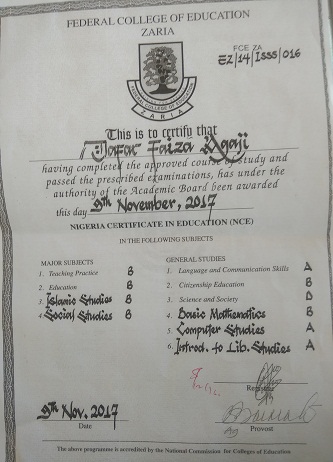 FEDERAL COLLEGE OF EDUCATION
ZARIA
FCE ZA
EZ/14/ISSS/016
FEDERAL COLLEGE OF EDUCATION
ZARIA
This is to certify that
Jafar Faiza Agaji
having completed the approved course of study and
passed the prescribed examinations, has under the
authority of the Academic Board been awarded
this day 9th November, 2017
NIGERIA CERTIFICATE IN EDUCATION (NCE)
IN THE FOLLOWING SUBJECTS
MAJOR SUBJECTS
1. Teaching Practice B
2. Education B
3. Islamic Studies B
4. Social Studies B
GENERAL STUDIES
1. Language and Communication Skills A
2. Citizenship Education B
3. Science and Society D
4. Basic Mathematics B
5. Computer Studies A
6. Introd. to Lib. Studies A
Registrar
9th Nov. 2017
Date
Provost
The above programme is accredited by the National Commission for Colleges of Education